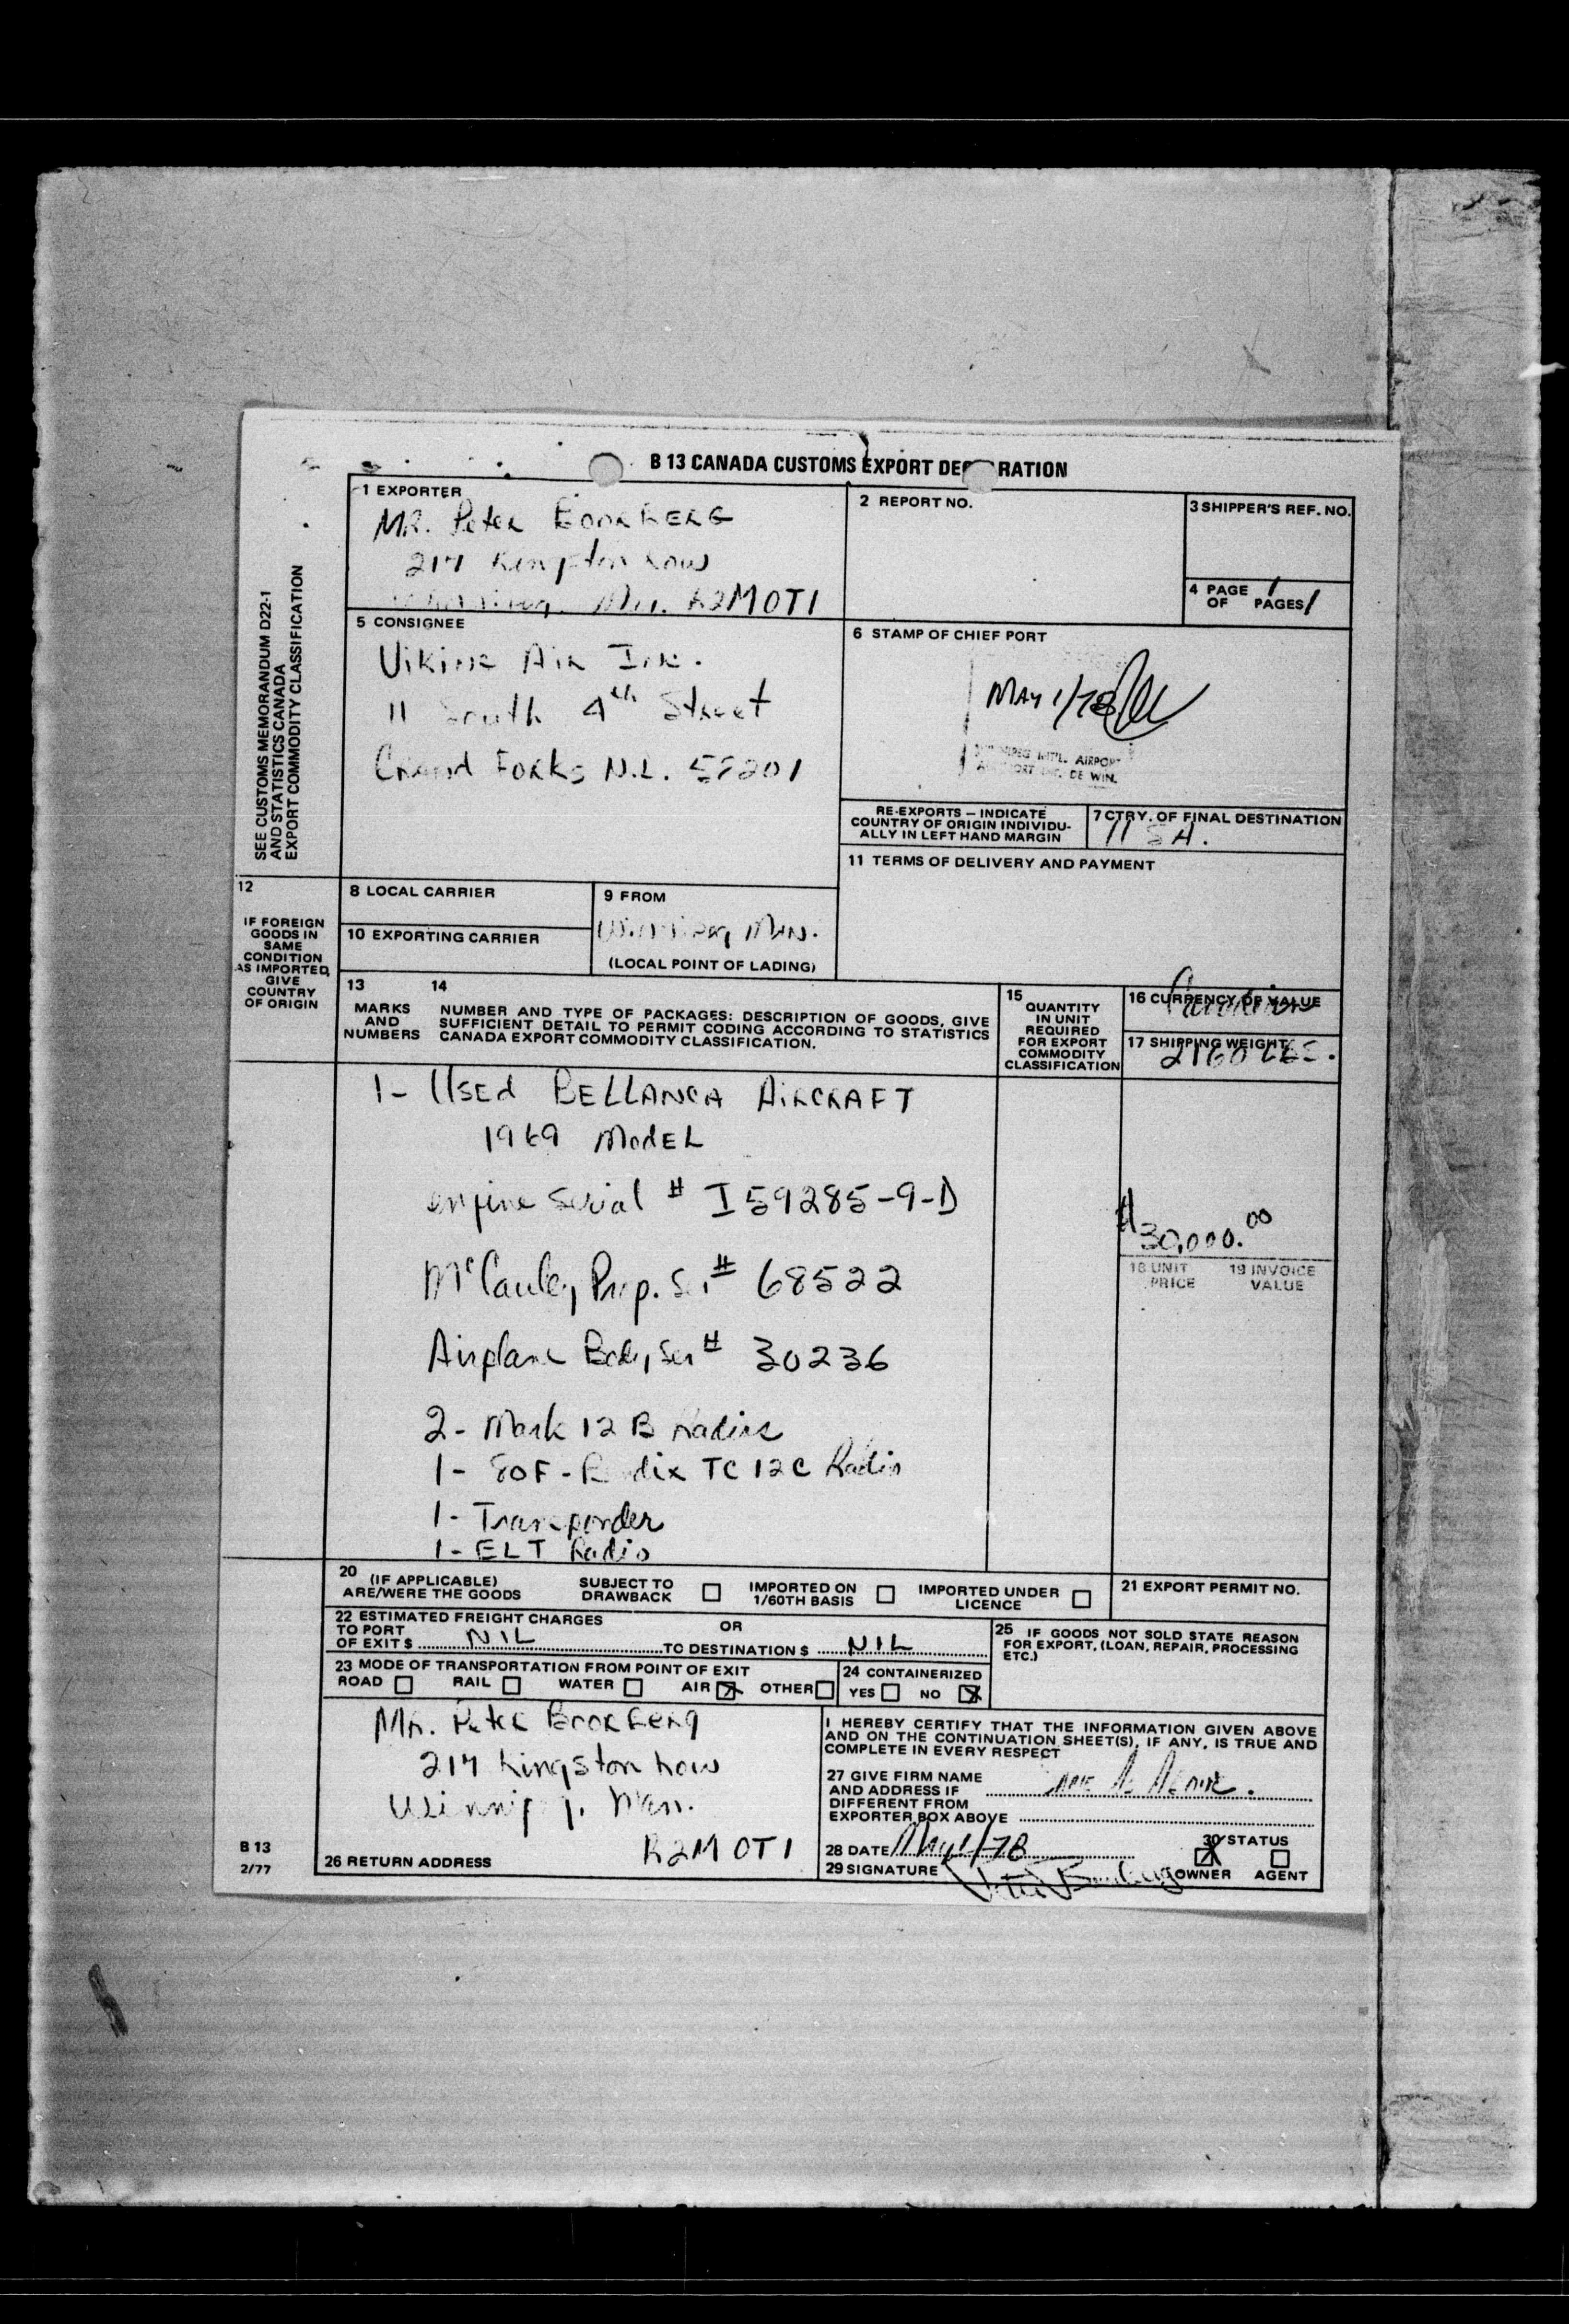 B 13 CANADA CUSTOMS EXPORT DEC RATION
SEE CUSTOMS MEMORANDUM D22-1
AND STATISTICS CANADA
EXPORT COMMODITY CLASSIFICATION
1 EXPORTER
MR. Peter BOORBERG
217 Kingston Row
Man. R2M 0T1
2 REPORT NO.
3 SHIPPER'S REF. NO.
4 PAGE 1
OF PAGES 1
5 CONSIGNEE
Viking Air Inc.
11 South 4th Street
Grand Forks N.D. 58201
6 STAMP OF CHIEF PORT
MAY 1/78
WINNIPEG INT'L. AIRPORT
AÉROPORT INT. DE WIN.
RE-EXPORTS – INDICATE
COUNTRY OF ORIGIN INDIVIDU-
ALLY IN LEFT HAND MARGIN
7 CTRY. OF FINAL DESTINATION
USA.
8 LOCAL CARRIER
9 FROM
Winnipeg, Man.
(LOCAL POINT OF LADING)
10 EXPORTING CARRIER
11 TERMS OF DELIVERY AND PAYMENT
12
IF FOREIGN
GOODS IN
SAME
CONDITION
AS IMPORTED,
GIVE
COUNTRY
OF ORIGIN
13
MARKS
AND
NUMBERS
14
NUMBER AND TYPE OF PACKAGES: DESCRIPTION OF GOODS, GIVE
SUFFICIENT DETAIL TO PERMIT CODING ACCORDING TO STATISTICS
CANADA EXPORT COMMODITY CLASSIFICATION.
15
QUANTITY
IN UNIT
REQUIRED
FOR EXPORT
COMMODITY
CLASSIFICATION
16 CURRENCY OF VALUE
Canadian
17 SHIPPING WEIGHT
2160 LBS.
1- Used BELLANCA AIRCRAFT
1969 MODEL
engine Serial # I59285-9-D
McCauley Prop. S. # 68522
Airplane Body Ser # 30236
2- Mark 12 B Radios
1- Bendix TC 12C Radio
1- Transponder
1- ELT Radio
$30,000.00
18 UNIT
PRICE
19 INVOICE
VALUE
20 (IF APPLICABLE)
ARE/WERE THE GOODS
SUBJECT TO
DRAWBACK
IMPORTED ON
1/60TH BASIS
IMPORTED UNDER
LICENCE
21 EXPORT PERMIT NO.
22 ESTIMATED FREIGHT CHARGES
TO PORT
OF EXIT $ NIL
OR
TO DESTINATION $ NIL
23 MODE OF TRANSPORTATION FROM POINT OF EXIT
ROAD RAIL WATER AIR X OTHER
24 CONTAINERIZED
YES NO X
25 IF GOODS NOT SOLD STATE REASON
FOR EXPORT, (LOAN, REPAIR, PROCESSING
ETC.)
Mr. Peter Boorberg
217 Kingston Row
Winnipeg, Man.
R2M 0T1
26 RETURN ADDRESS
I HEREBY CERTIFY THAT THE INFORMATION GIVEN ABOVE
AND ON THE CONTINUATION SHEET(S), IF ANY, IS TRUE AND
COMPLETE IN EVERY RESPECT
27 GIVE FIRM NAME
AND ADDRESS IF
DIFFERENT FROM
EXPORTER BOX ABOVE
Same As Above.
28 DATE May 1/78
29 SIGNATURE
30 STATUS
X
OWNER AGENT
B 13
2/77